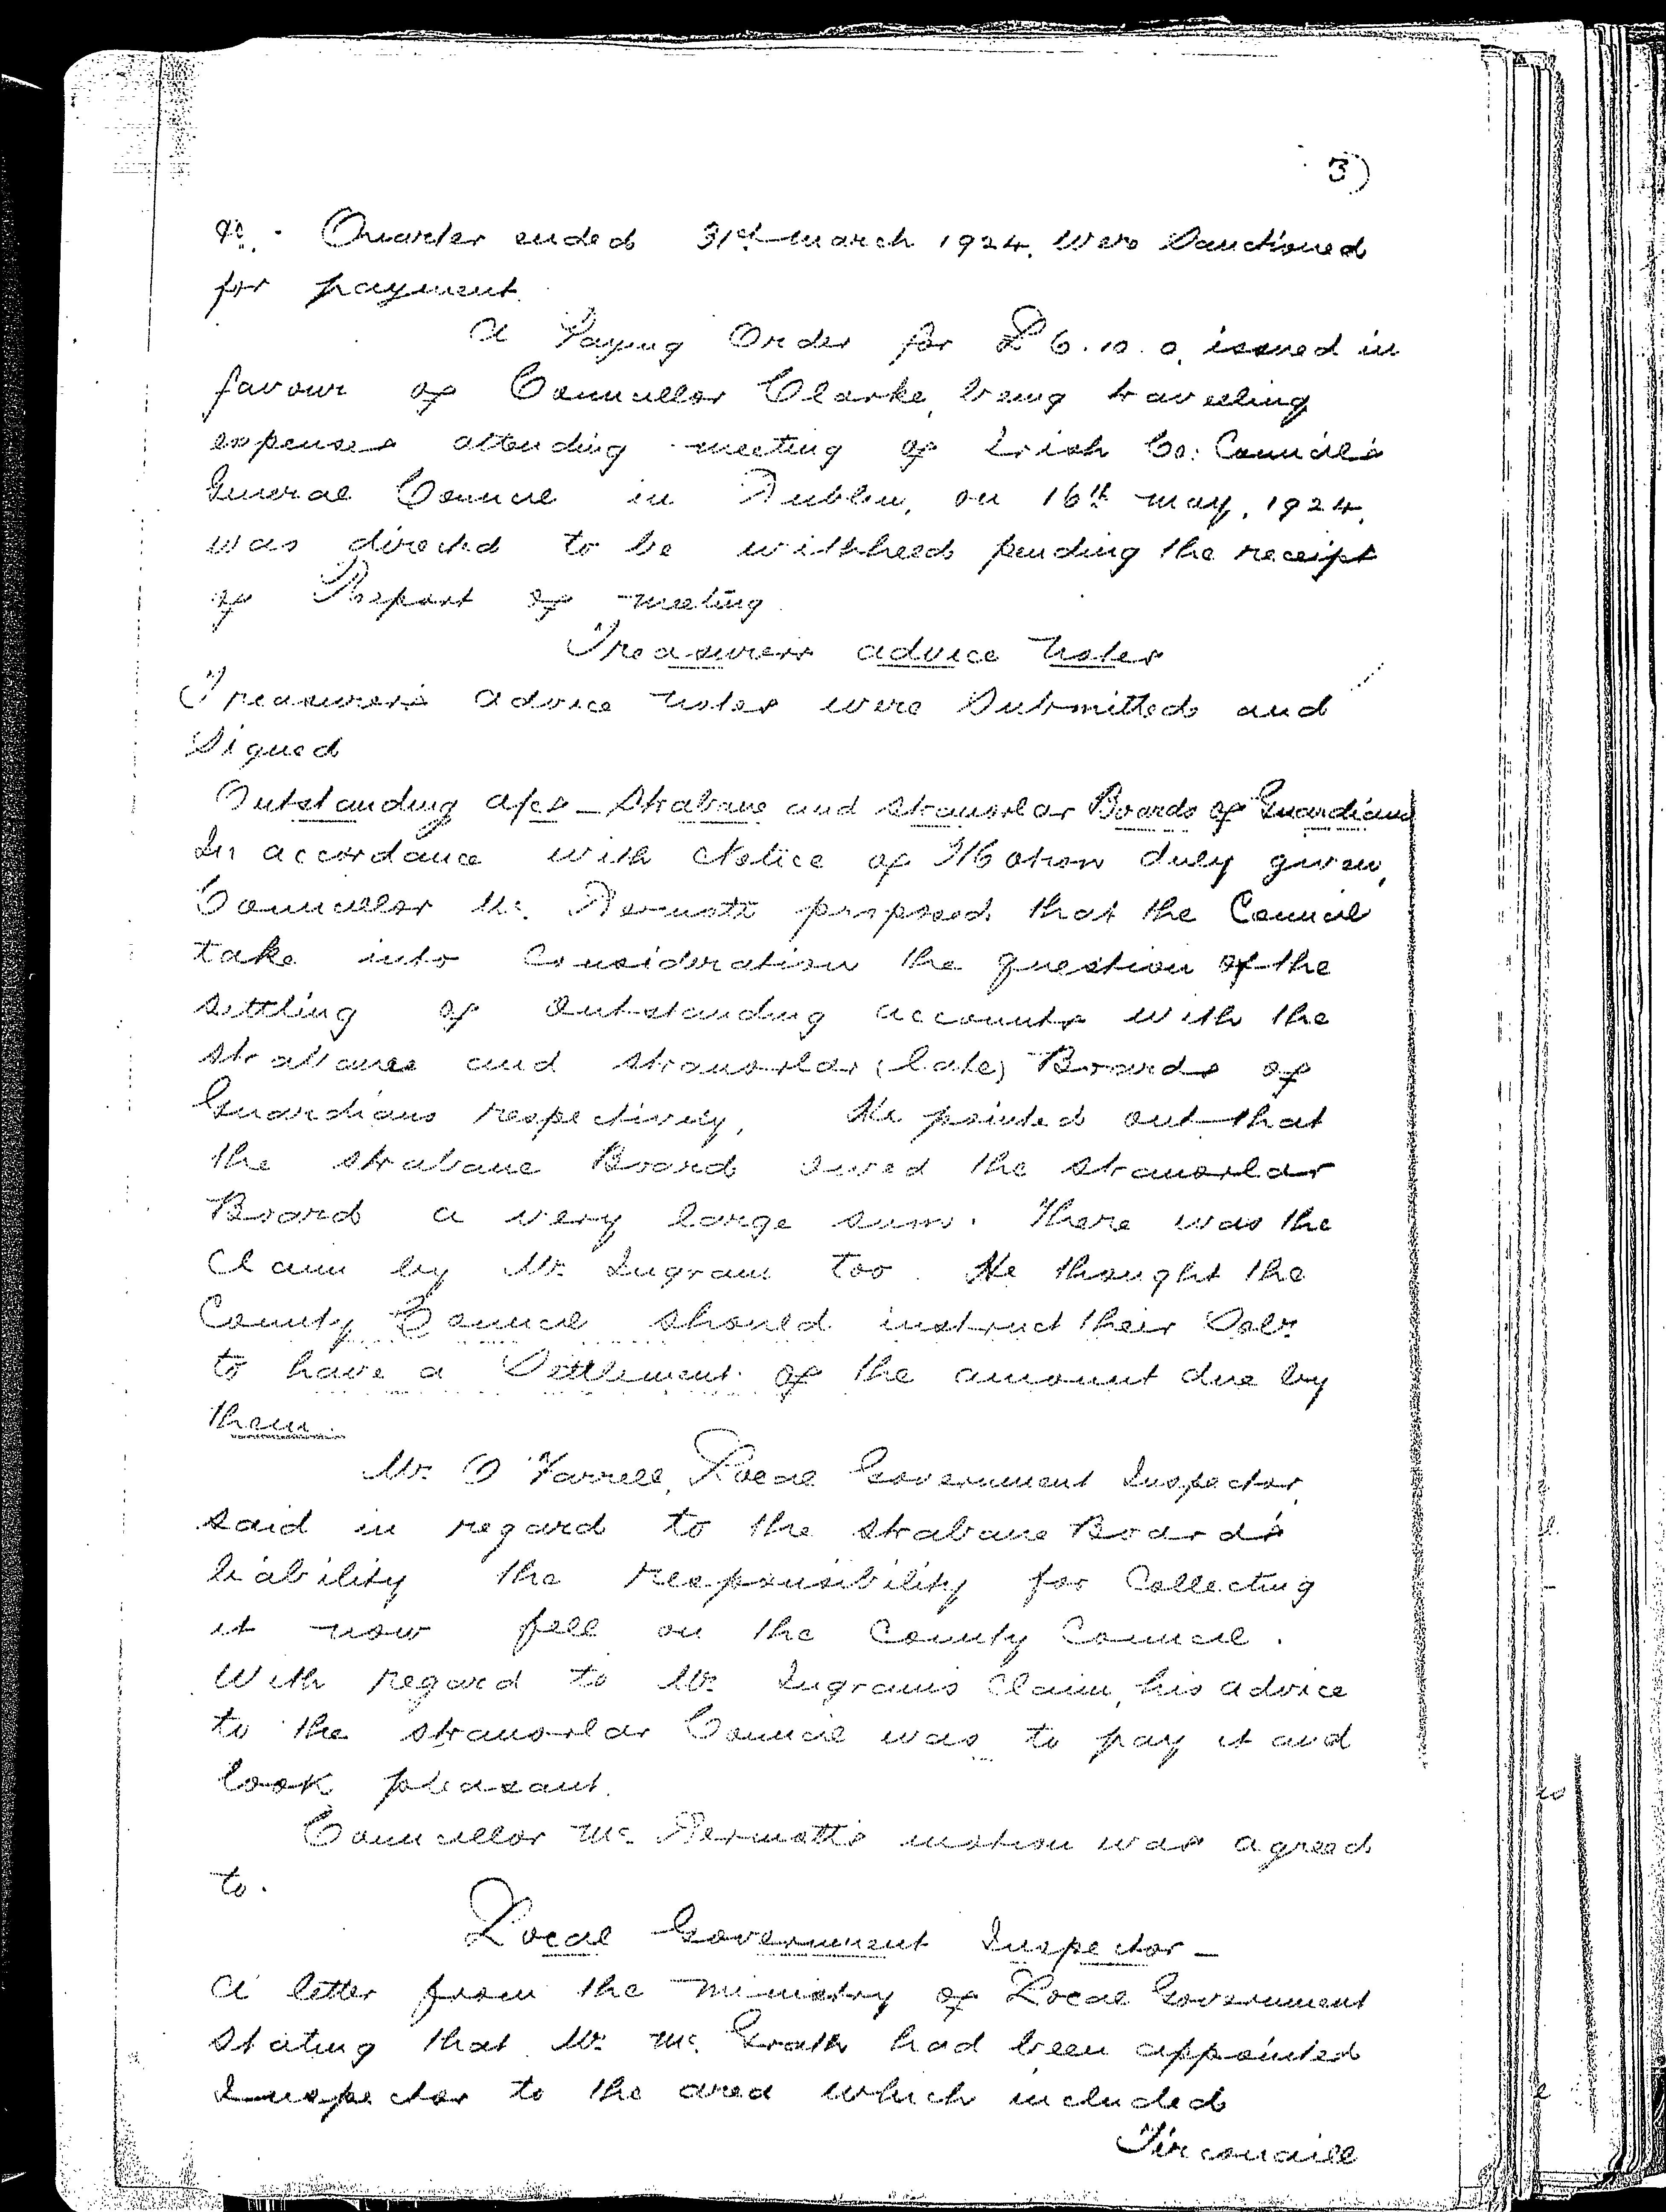 3)
&c. Quarter ended 31st March 1924. Were Sanctioned
for payment.
A Paying Order for £6.10.0. issued in
favour of Councillor Clarke, being travelling
expenses attending meeting of Irish Co: Councils
General Council in Dublin, on 16th May, 1924,
was directed to be withheld pending the receipt
of Report of meeting.
Treasurers advice Notes
Treasurers advice Notes were Submitted and
Signed
Outstanding a/cs - Strabane and Stranorlar Boards of Guardians
In accordance with Notice of Motion duly given,
Councillor Mc. Dermott proposed that the Council
take into Consideration the question of the
settling of outstanding accounts with the
Strabane and Stranorlar (late) Boards of
Guardians respectively. He pointed out that
the Strabane Board owed the Stranorlar
Board a very large sum. There was the
Claim by Mr. Ingram too. He thought the
County Council should instruct their Solr.
to have a Settlement of the amount due by
them.
Mr. O'Farrell, Local Government Inspector,
said in regard to the Strabane Board's
liability the responsibility for Collecting
it now fell on the County Council.
With regard to Mr. Ingram's Claim, his advice
to the Stranorlar Council was to pay it and
look pleasant.
Councillor Mc. Dermott's motion was agreed
to.
Local Government Inspector -
A letter from the Ministry of Local Government
stating that Mr. Mc. Grath had been appointed
Inspector to the area which included
Tirconaill